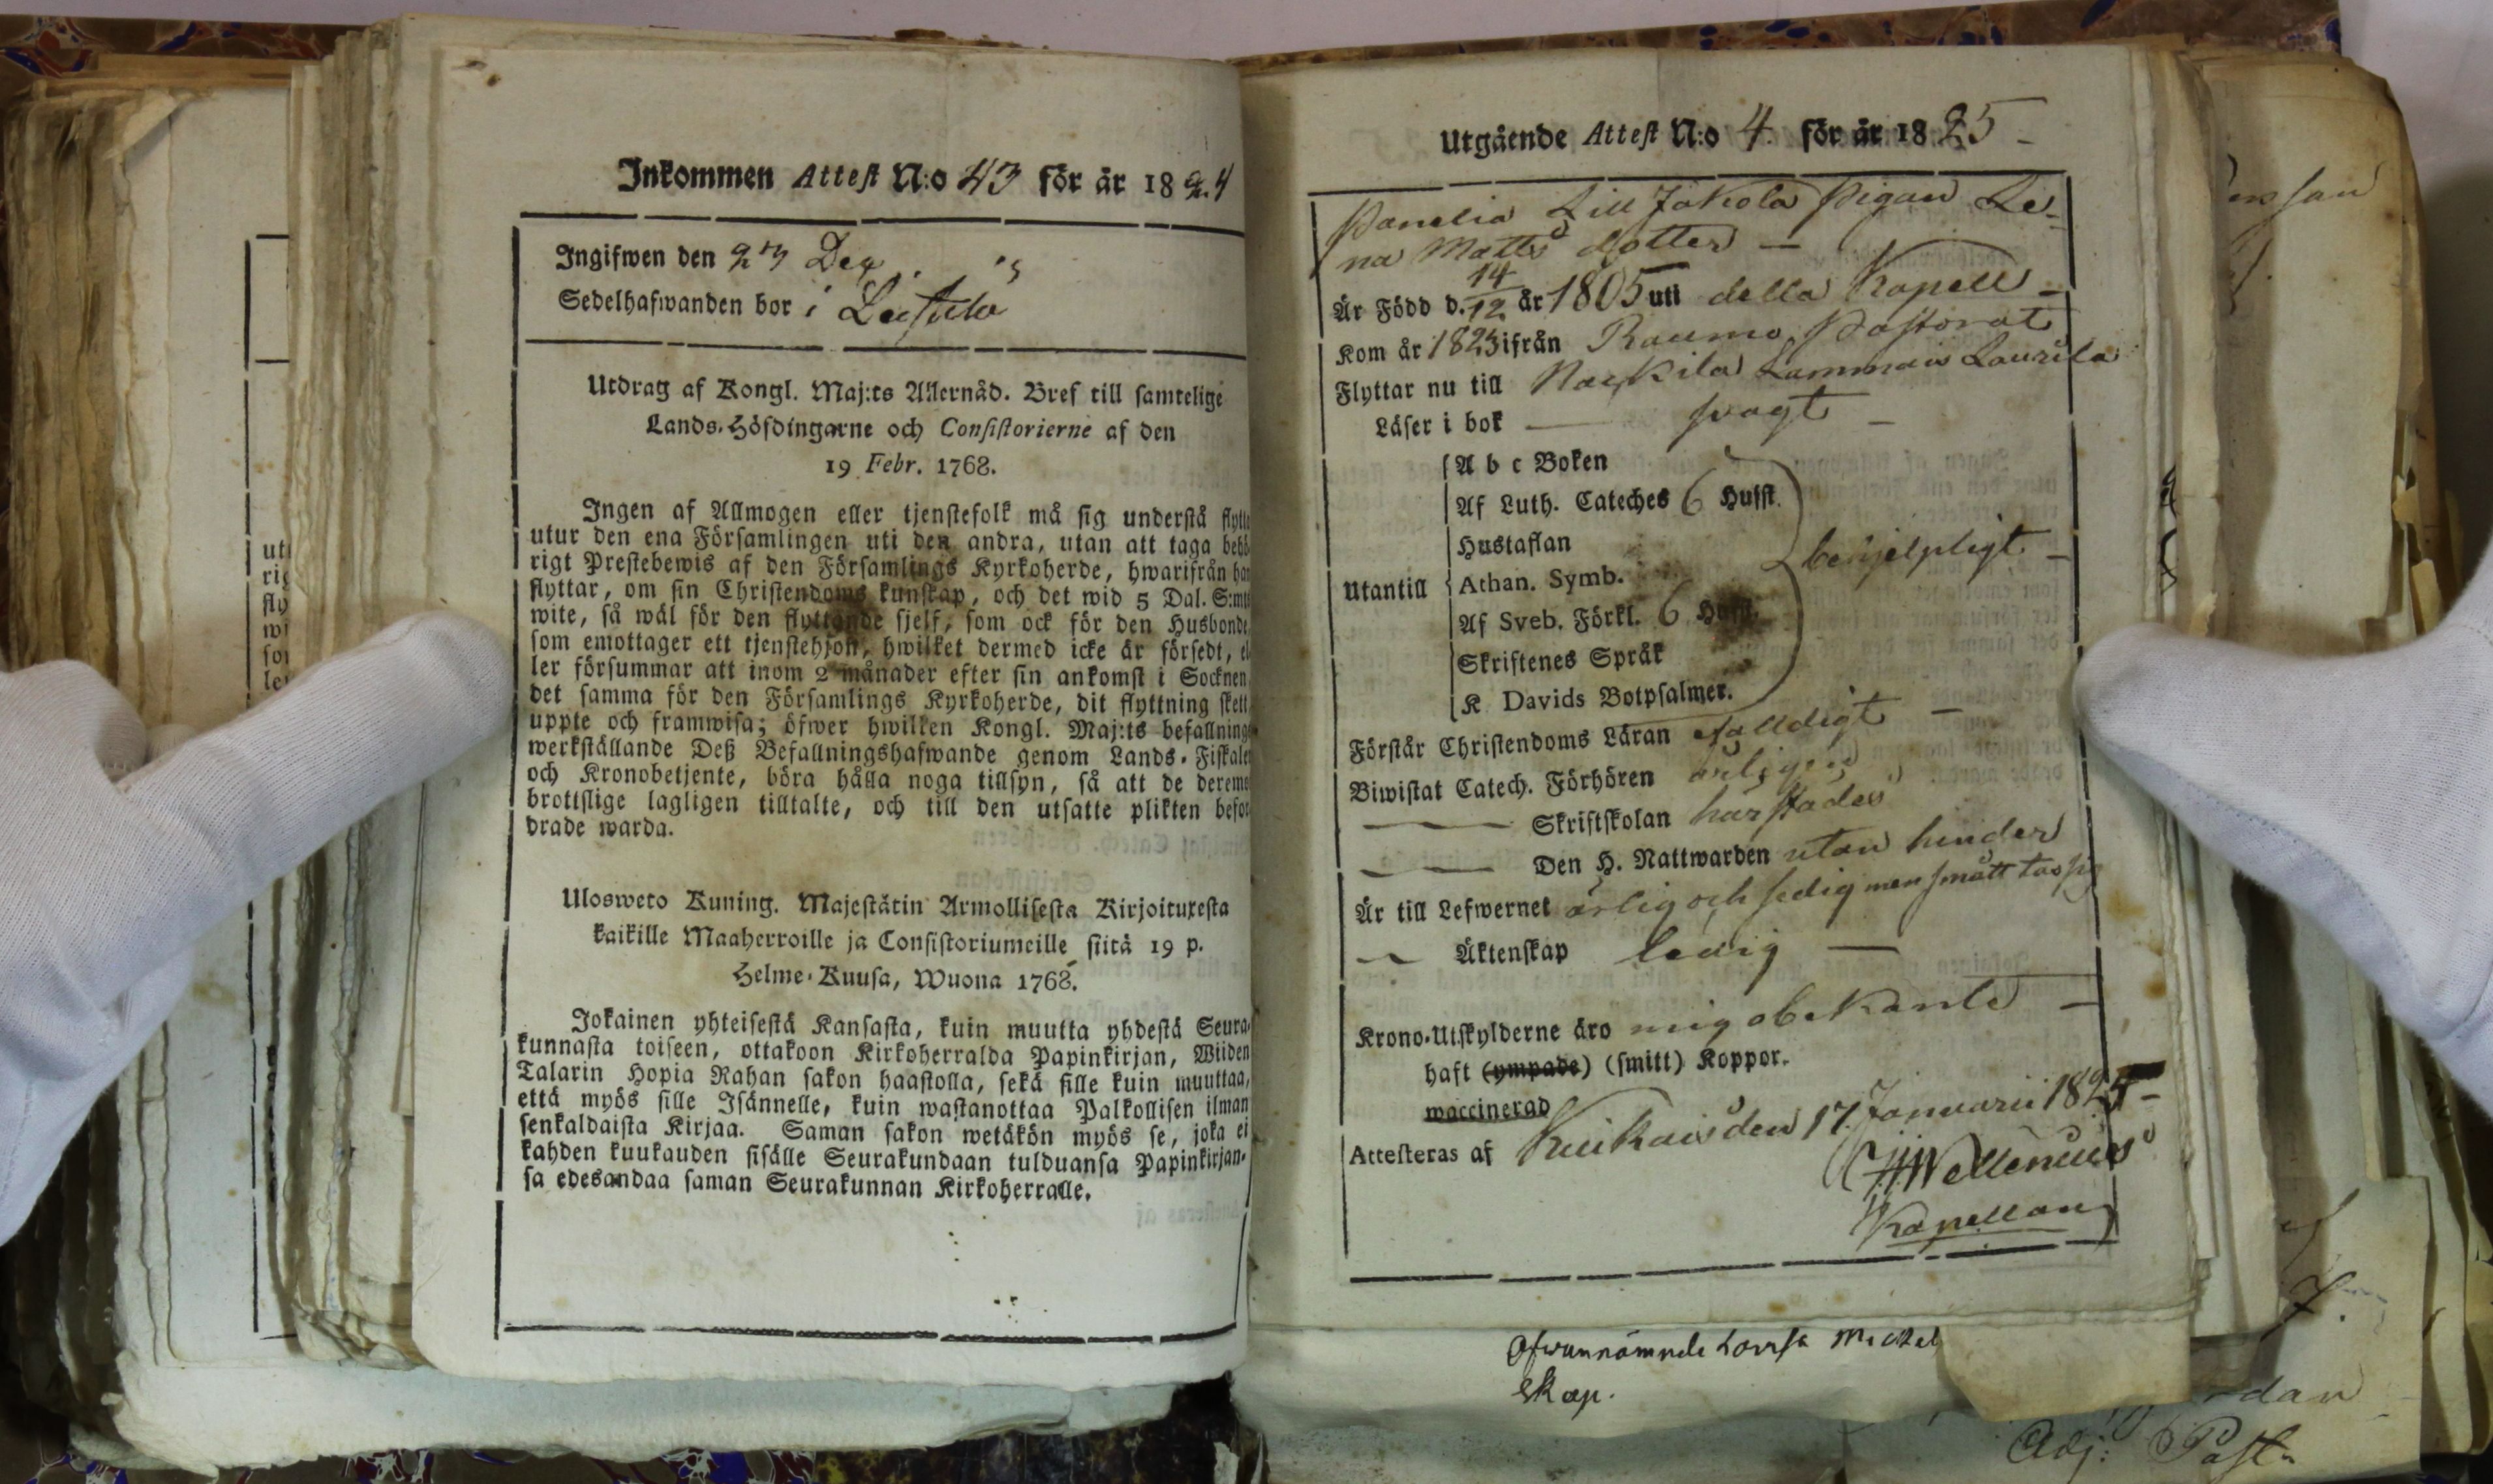 Inkommen Attest N:o 43 för år 1824
Ingifwen den 27 Dec
Sedelhafwanden bor i
Utdrag af Kongl. Maj:ts Allernåd. Bref till samtelige
Lands-Höfdingarne och Consistorierne af den
19 Febr. 1768.
Ingen af Allmogen eller tjenstefolk må sig understå flytt
utur den ena Församlingen uti den andra, utan att taga behö
rigt Prestebewis af den Församlings Kyrkoherde, hwarifrån han
flyttar, om sin Christendoms kunskap, och det wid 5 Dal. S:mts
wite, så wäl för den flyttande sjelf, som ock för den Husbonde
som emottager ett tjenstehjon, hwilket dermed icke är försedt, el
ler försummar att inom 2 månader efter sin ankomst i Socknen
det samma för den Församlings Kyrkoherde, dit flyttning skett
uppte och framwisa; öfwer hwilken Kongl. Maj:ts befallning
werkställande Deß Befallningshafwande genom Lands-Fiskaler
och Kronobetjente, böra hålla noga tillsyn, så att de dereme
brottslige lagligen tilltalte, och till den utsatte plikten befor
drade warda.
Ulosweto Kuning. Majestätin Armollisesta Kirjoituxesta
kaikille Maaherroille ja Consistoriumeille siitä 19 p.
Helme-Kuusa, Wuona 1768.
Jokainen yhteisestä Kansasta, kuin muutta yhdestä Seura-
kunnasta toiseen, ottakoon Kirkoherralda Papinkirjan, Wiiden
Talarin Hopia Rahan sakon haastolla, sekä sille kuin muuttaa,
että myös sille Isännelle, kuin wastanottaa Palkollisen ilman
senkaldaista Kirjaa. Saman sakon wetäkön myös se, joka ei
kahden kuukauden sisälle Seurakundaan tulduansa Papinkirjan-
sa edesandaa saman Seurakunnan Kirkoherralle.
Utgående Attest N:o 4. för år 1825 -
Panelia Lill Jakola Pigan Le-
na Matts dotter -
Är Född d. 14/12 år 1805 uti detta Kapell -
Kom år 1823 ifrån Raumo Pastorat
Flyttar nu till Nackila Lammais Laurila
Läser i bok — svagt -
A b c Boken
Af Luth. Cateches 6 Hufst.
Hustaflan
Utantill Athan. Symb. behjelpligt -
Af Sveb. Förkl. 6 Hufst.
Skriftenes Språk
K Davids Botpsalmer.
Förstår Christendoms Läran efalldigt -
Biwistat Catech. Förhören årligen
Skriftskolan härstädes
Den H. Nattwarden utan hinder
Är till Lefwernet ärlig och sedig men smått tassig
Äktenskap ledig -
Krono-Utskylderne äro mig obekante -
haft (ympade) (smitt) Koppor.
waccinerad
Attesteras af Kiukais den 17. Januarii 1825 -
Wellenius
Kapellan
Ofwannämnde Lovisa Michel
skap.
Adj: Past.